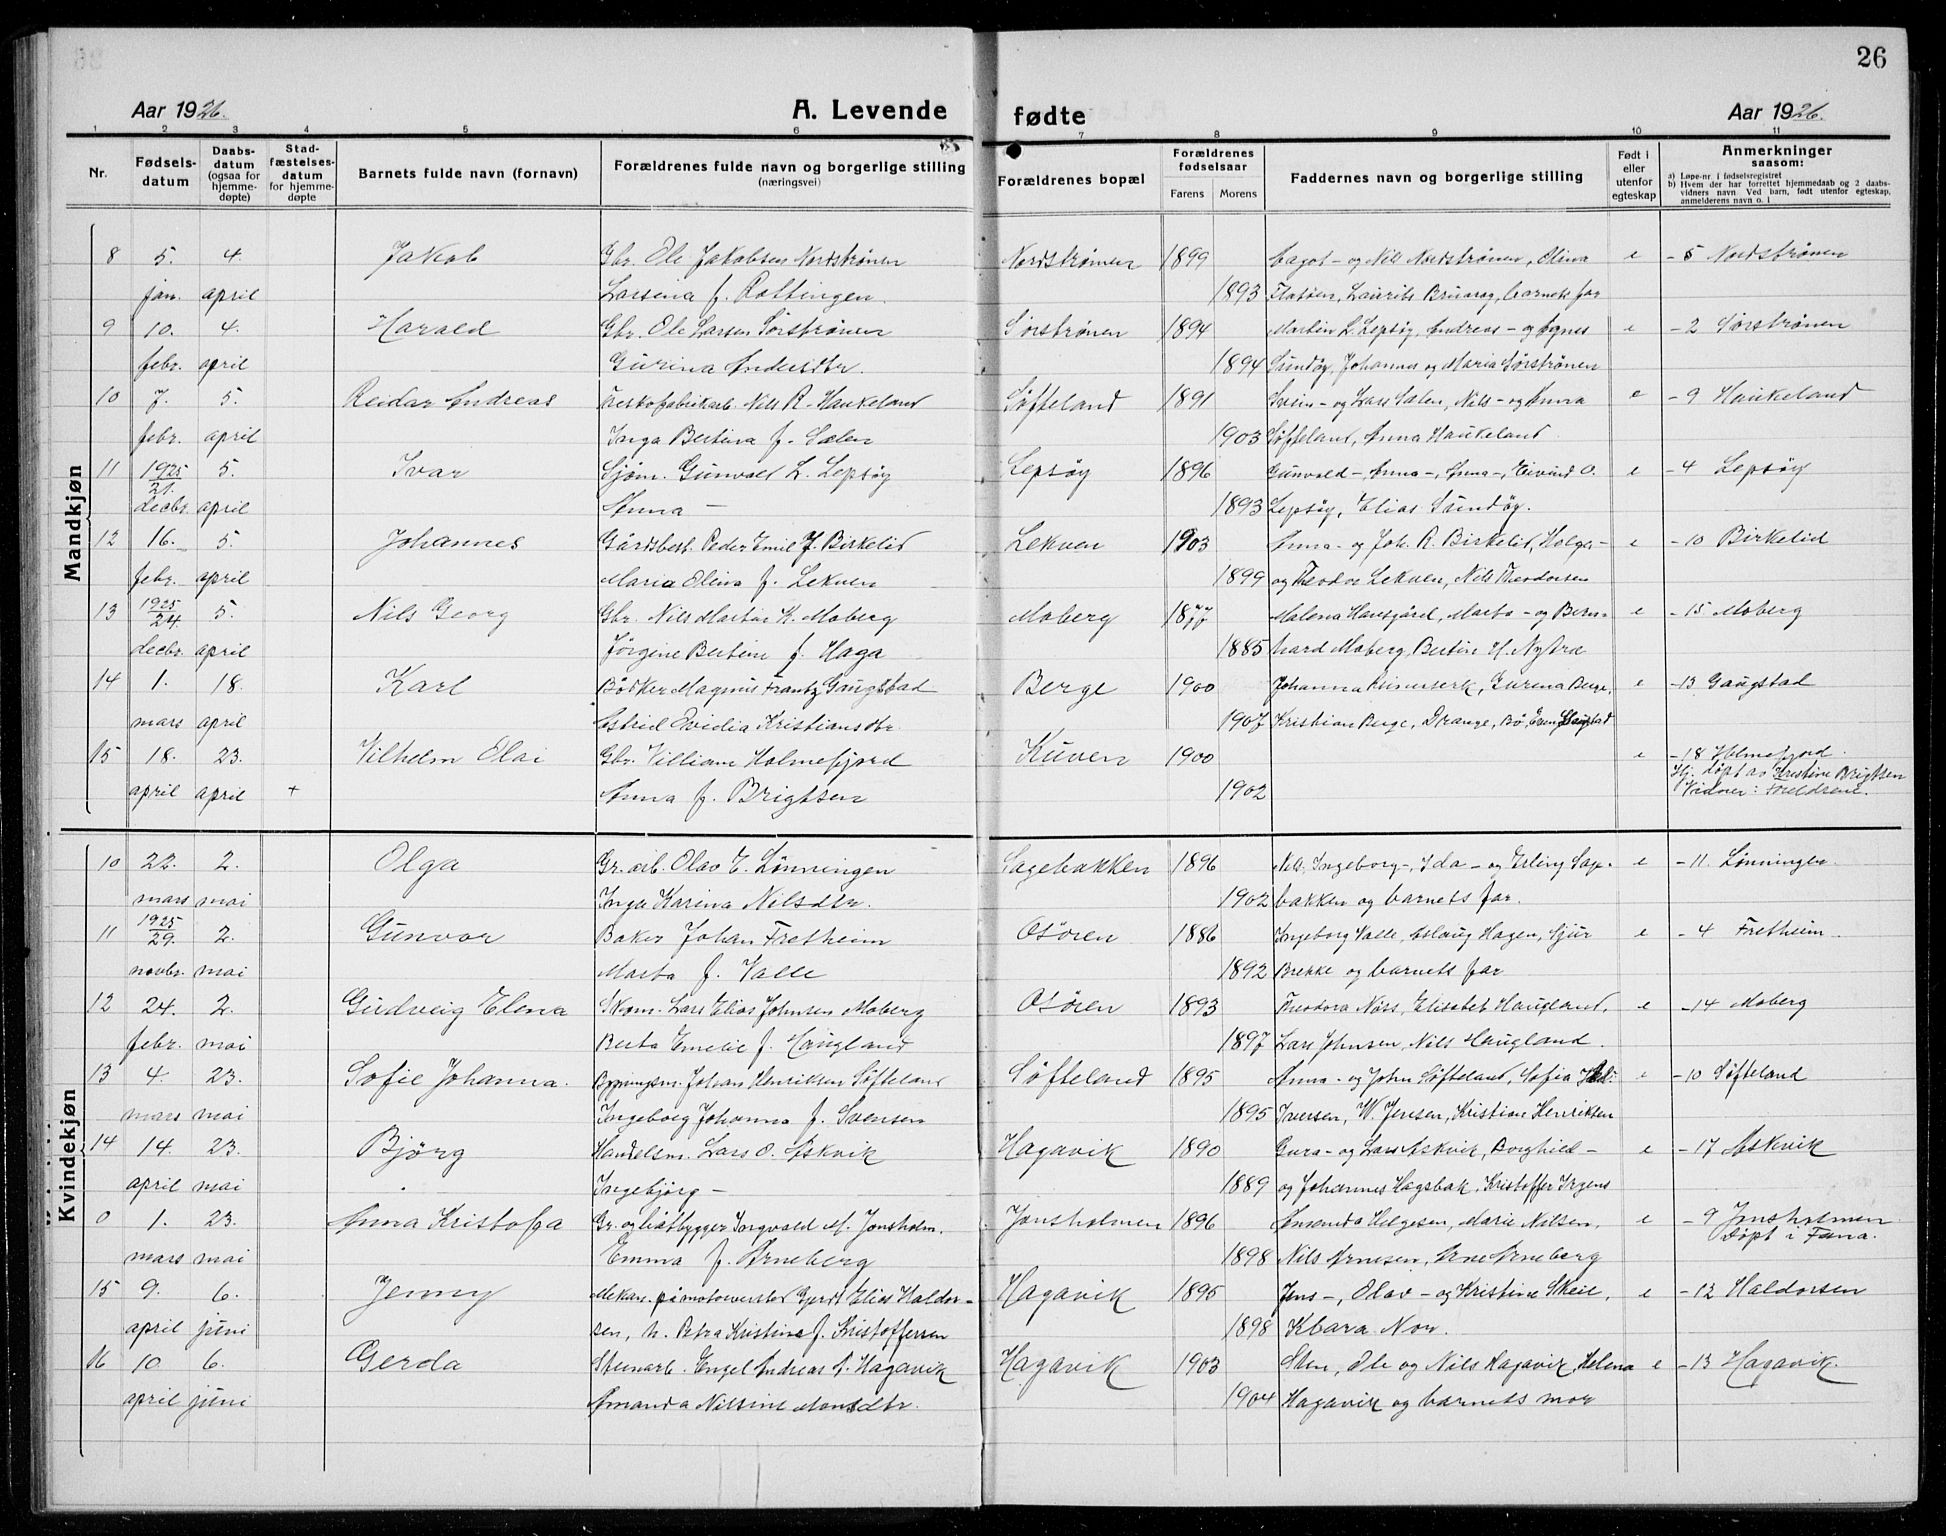 26
Aar 1926. A. Levende fødte Aar 1926.
1 2 3 4 5 6 7 8 9 10 11
Nr. Fødsels-datum Daabs-datum (ogsaa for hjemme-døpte) Stad-fæstelses-datum for hjemme-døpte Barnets fulde navn (fornavn) Forældrenes fulde navn og borgerlige stilling (næringsvei) Forældrenes bopæl Forældrenes fødselsaar Farens Morens Faddernes navn og borgerlige stilling Født i eller utenfor egteskap Anmerkninger saasom: a) Løpe-nr. i fødselsregistret b) Hvem der har forrettet hjemmedaab og 2 daabsvidners navn Ved barn, født utenfor egteskap, anmelderens navn o. l
Mandkjøn
8 5. 4. Jakob Gbr. Ole Jakobsen Nordstrønen Nordstrønen 1899 Cagot- og Nils Nordstrønen, Olina e - 5 Nordstrønen
jan. april Larsina f. Rottingen 1893 Flatøen, Laurits Bruarøg, barnets far
9 10. 4. Harald Gbr. Ole Larsen Sørstrønen Sørstrønen 1894 Martin L. Lepsøy, Andreas- og Agnes e - 2 Sørstrønen
febr. april Gurina Andersdtr. 1894 Sundøy, Johannes og Maria Sørstrønen
10 7. 5. Reidar Andreas Nils R. Haukeland Søfteland 1891 Svein- og Lars Sælen, Nils- og Anna e - 9 Haukeland
febr. april Inga Bertina f. Sælen 1903 Søfteland, Anna Haukeland
11 1925 21. 5. Ivar Sjøm. Gunvald L. Lepsøy Lepsøy 1896 Gunvald-, Anna-, Anna-, Eivind O. e - 4 Lepsøy
decbr. april Anna - 1893 Lepsøy, Elias Sundøy.
12 16. 5. Johannes Gårdsbest. Peder Emil J. Birkelid Lekven 1903 Anna- og Joh. R. Birkelid, Helga- e - 10 Birkelid
febr. april Maria Olina f. Lekven 1899 og Theodor Lekven, Nils Theodorsen
13 1925 24. 5. Nils Georg Gbr. Nils Martin K. Moberg Moberg 18 Malena Hansgård, Marta- og Bern- e - 15 Moberg
decbr. april Jørgine Bertine f. Haga 1885 hard Moberg, Bertine H. Nytræ
14 1. 18. Karl Bødker Magnus Frantz Gaugstad Berge 1900 Johanna Reinertserk, Gurina Berge, e - 13 Gaugstad
mars april Astrid Ovidia Kristiansdtr. 1907 Kristian Berge, Drange, Bø, Gaugstad
15 18. 23. Vilhelm Elai Gbr. Villiam Holmefjord Kuven 1900 e - 18 Holmefjord.
april april + Anna f. Brigtsen 1902 Hj. døpt av Kristine Brigtsen
Vidner: foreldrene.
Kvindekjøn
10 22. 2. Olga Gr. arb. Olav E. Lønningen Sagebakken 1896 Ingeborg-, Ida- og Erling Sage- e - 11 Lønningen
mars mai Inga Karina Nilsdtr. 1902 bakken og barnets far.
11 1925 29. 2. Gunvor Baker Johan Fretheim Osøren 1886 Ingeborg Valle, Aslaug Hagen, Sjur e - 4 Fretheim
novbr. mai Marta f. Valle 1892 Brekke og barnets far
12 24. 2. Gudveig Elena Skom. Lars Elias Johnsen Moberg Osøren 1893 Theodora Näss, Elisabet Haugland, e - 14 Moberg
febr. mai Berta Emelie f. Haugland 1897 Lars Johnsen, Nils Haugland.
13 4. 23. Sofie Johanna. Bygningsm. Johan Henriksen Søfteland Søfteland 1895 Anna- og John Søfteland, Sofia e - 10 Søfteland
mars mai Ingeborg Johanna f. Svensen 1895 Iversen, W. Jensen, Kristian Henriksen
14 14. 23. Bjørg Handelsm. Lars O. Askvik Hagavik 1890 Gura- og Lars Askvik, Borghild- e - 17 Askvik
april mai Ingebjørg - 1889 og Johannes Hagsbak, Kristoffer Irgens
0 1. 23. Anna Kristofa Gr. og båtbygger Torgvald M. Jonsholm. Jonsholmen 1896 Amanda Helgesen, Marie Nilsen, e - 9 Jonsholmen
mars mai Emma f. Arneberg 1898 Nils Arnesen, Arne Arneberg Døpt i Fana.
15 9. 6. Jenny Mekan. på motorverksted Gjert Elias Haldor- Hagavik 1895 Jens-, Olav- og Kristine Skeie, e - 12 Haldorsen
april juni sen, h. Petra Kristine f. Kristoffersen 1898 Klara Nor.
16 10. 6. Gerda Stenarb. Engel Andreas A. Hagavik Hagavik 1903 Sten, Ole og Nils Hagavik, Helena e - 13 Hagavik.
april juni Amanda Nilsine Monsdtr. 1904 Hagavik og barnets mor